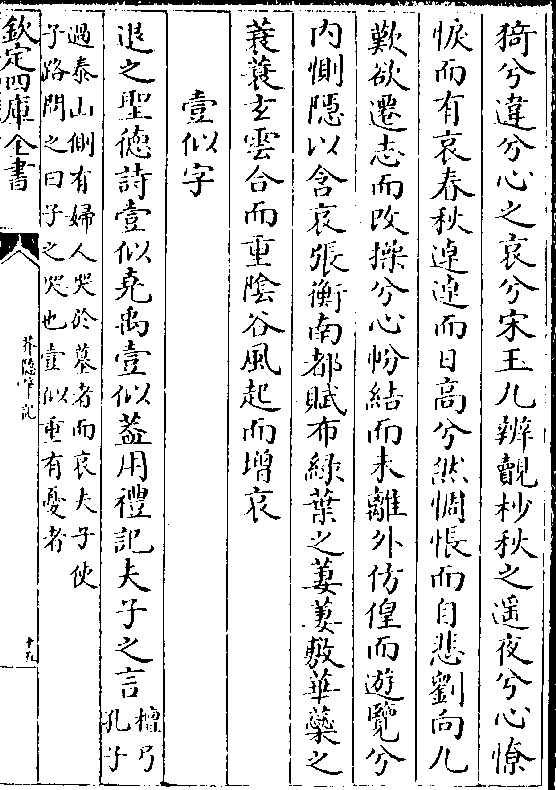 猗兮違兮心之哀兮宋玉九辨覩杪秋之遥夜兮心憭
悷而有哀春秋逴逴而日高兮然惆悵而自悲劉向九
歎欲遷志而改操兮心紛結而未離外彷徨而遊覽兮
内惻隠以含哀張衡南都賦布緑葉之萋萋敷華蘂之
蓑蓑玄雲合而重陰谷風起而增哀
壹似字
退之聖徳詩壹似堯禹壹似葢用禮記夫子之言檀弓
孔子
過泰山側有婦人哭於墓者而哀夫子使
子路問之曰子之哭也壹似重有憂者
欽定四庫全書
芥隠筆記
十九